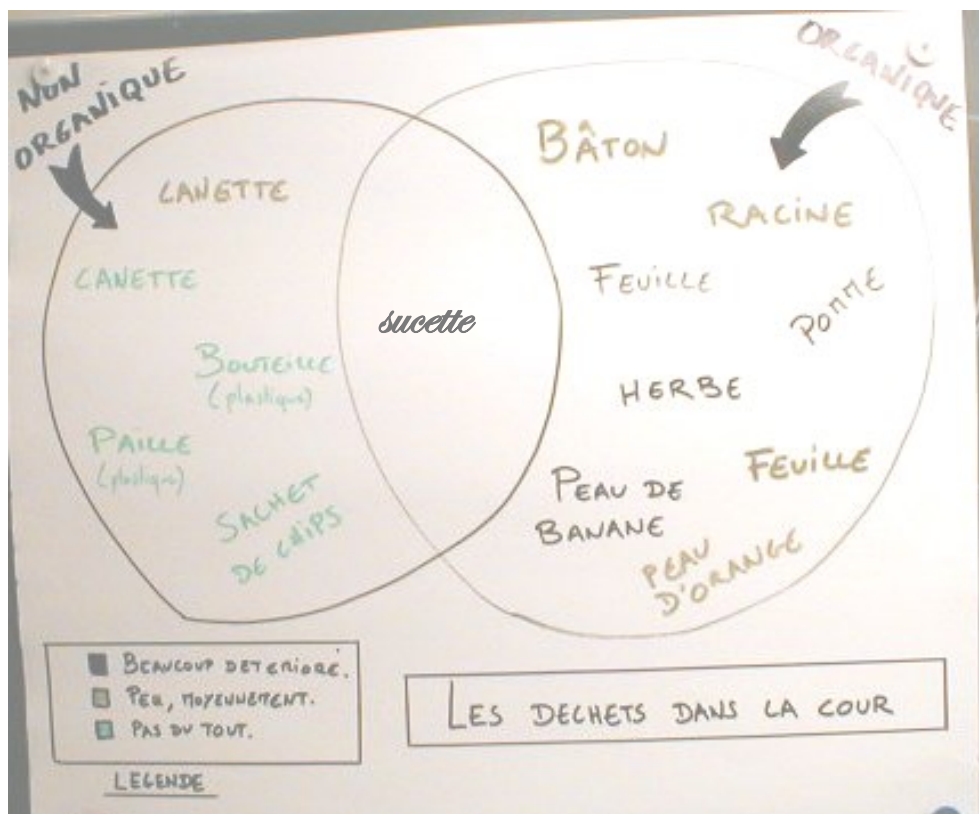 NON
ORGANIQUE
ORGANIQUE
CANETTE
CANETTE
BOUTEILLE
(plastique)
PAILLE
(plastique)
SACHET
DE CHIPS
sucette
BÂTON
RACINE
FEUILLE
POMME
HERBE
FEUILLE
PEAU DE
BANANE
PEAU
D'ORANGE
BEAUCOUP DETERIORÉ.
PEU, MOYENNEMENT.
PAS DU TOUT.
LEGENDE
LES DECHETS DANS LA COUR